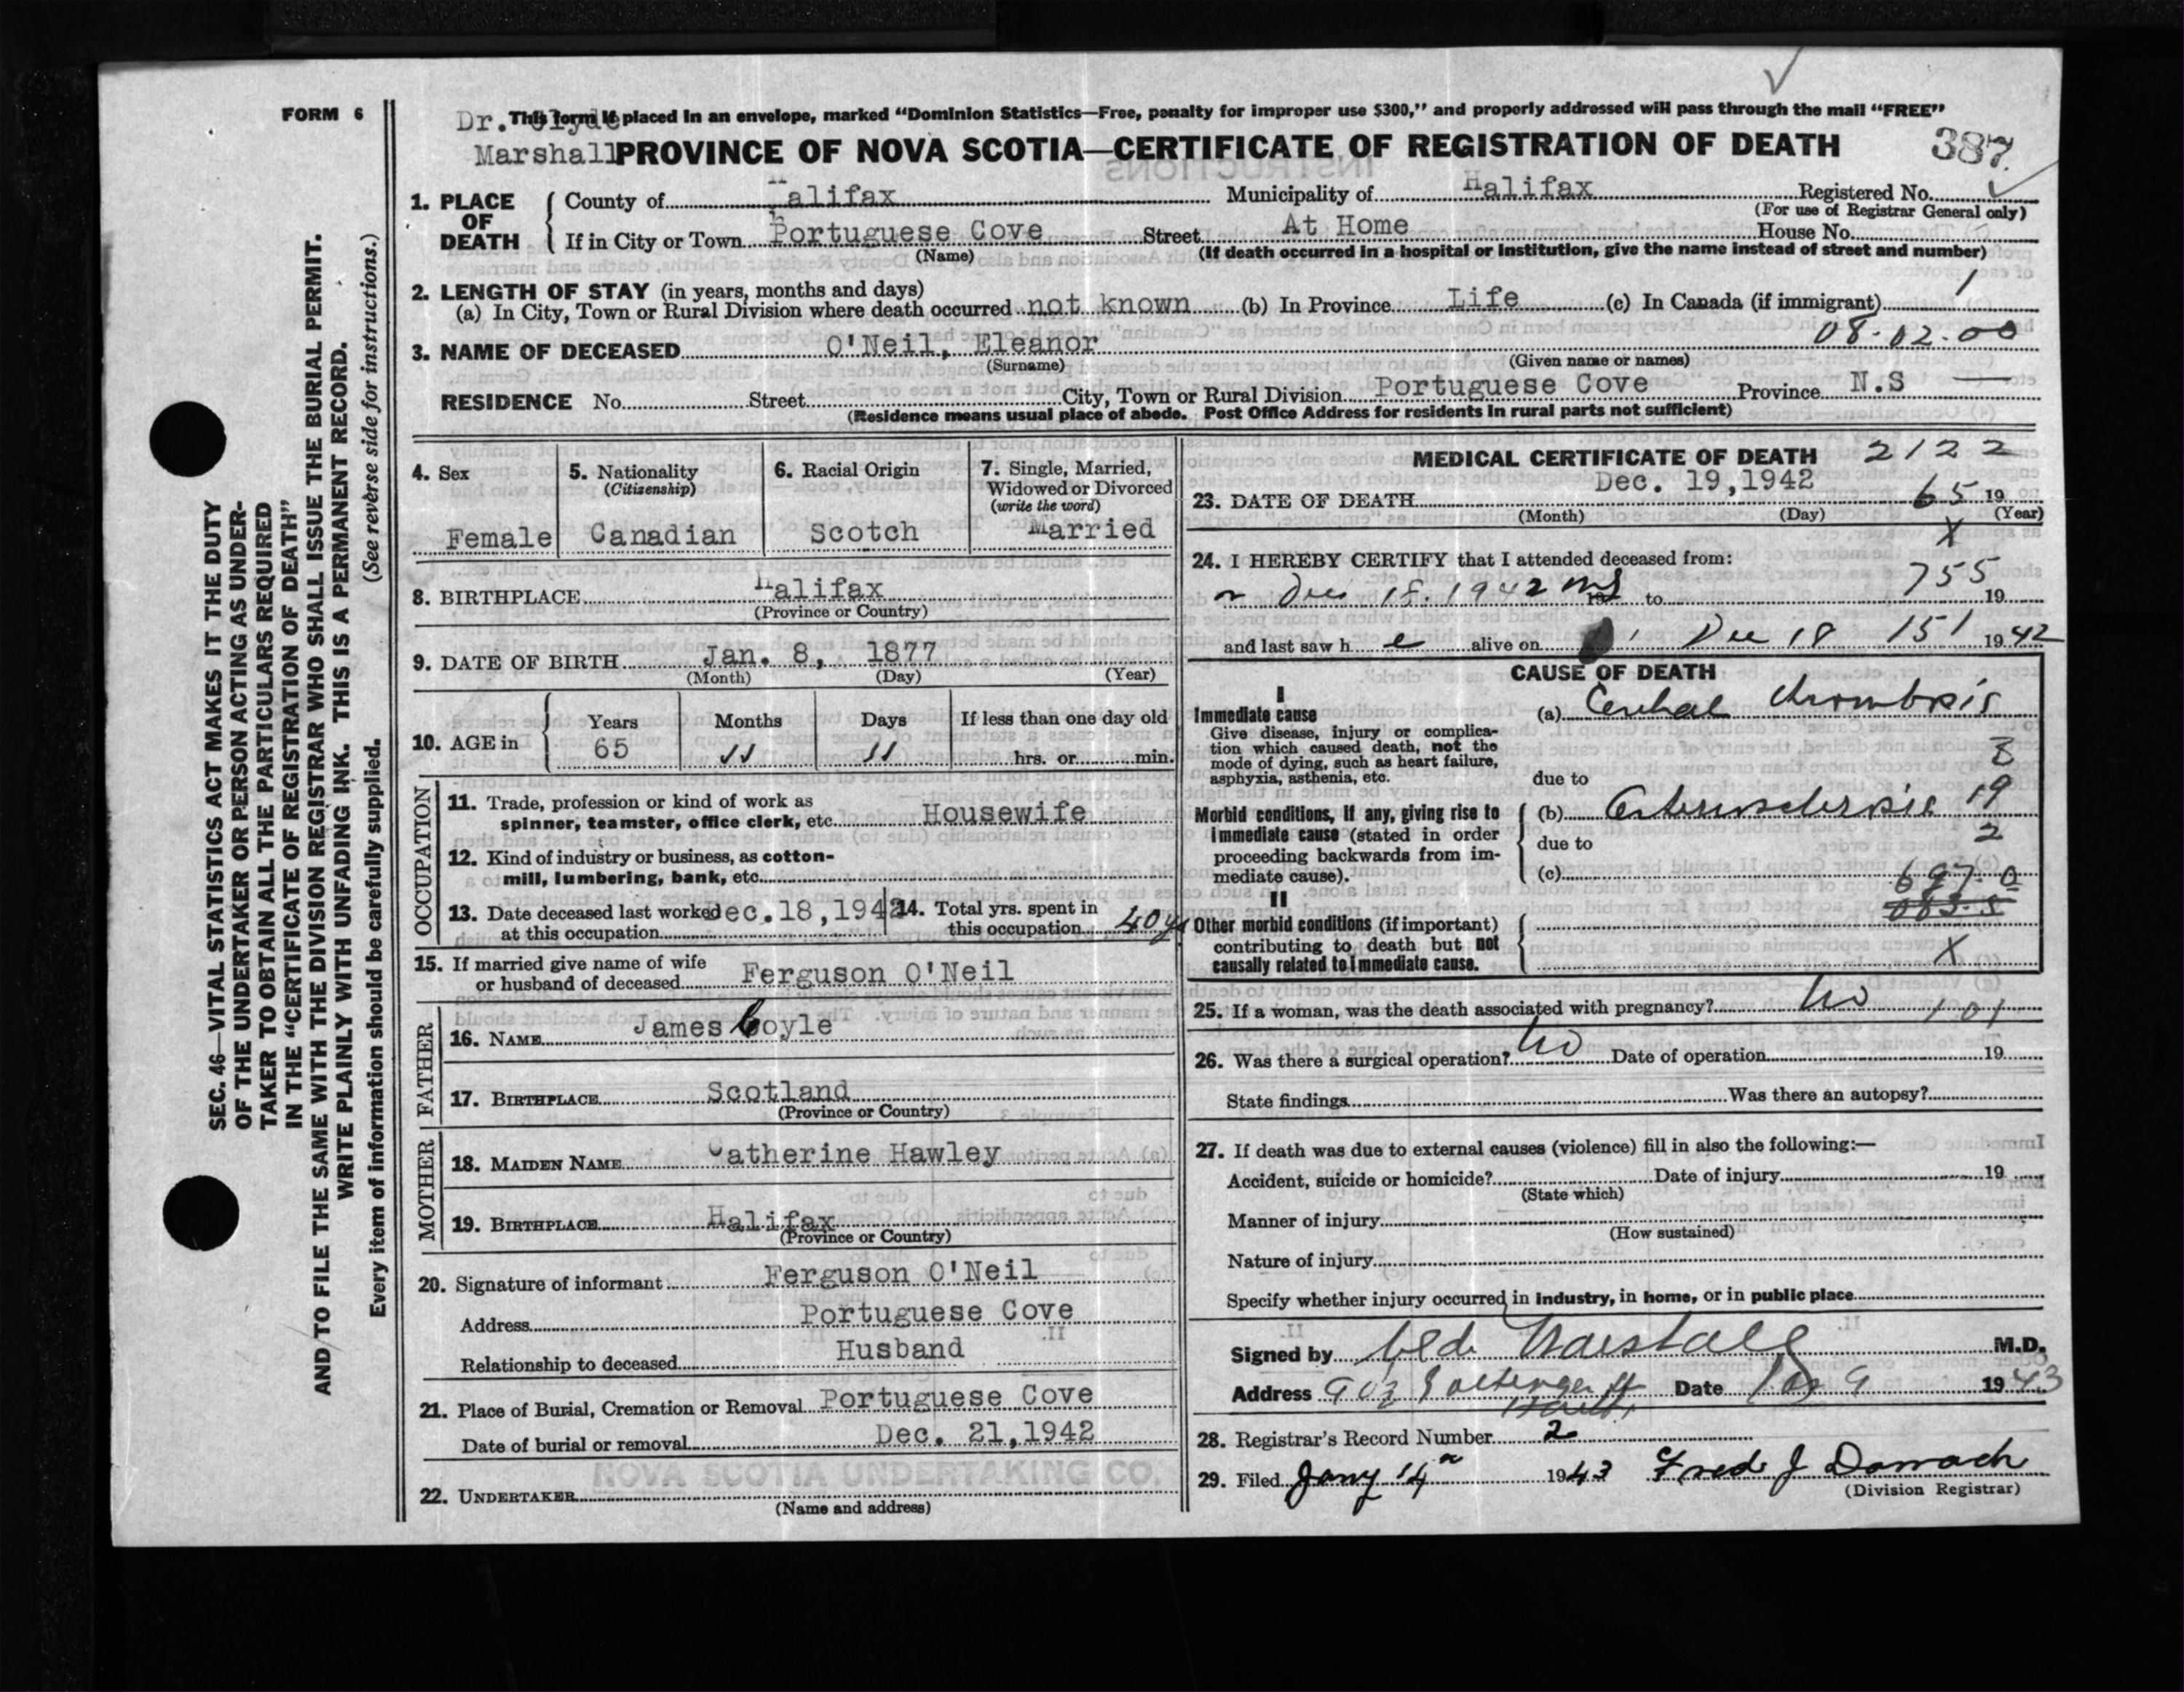 FORM 6
Dr. Clyde
This form if placed in an envelope, marked "Dominion Statistics—Free, penalty for improper use $300," and properly addressed will pass through the mail "FREE"
Marshall
PROVINCE OF NOVA SCOTIA—CERTIFICATE OF REGISTRATION OF DEATH
387
1. PLACE OF DEATH
County of Halifax Municipality of Halifax Registered No.
(For use of Registrar General only)
If in City or Town Portuguese Cove Street At Home House No.
(Name) (If death occurred in a hospital or institution, give the name instead of street and number)
2. LENGTH OF STAY (in years, months and days)
(a) In City, Town or Rural Division where death occurred not known (b) In Province Life (c) In Canada (if immigrant)
08-02-00
3. NAME OF DECEASED O'Neil, Eleanor
(Surname) (Given name or names)
RESIDENCE No. Street City, Town or Rural Division Portuguese Cove Province N.S
(Residence means usual place of abode. Post Office Address for residents in rural parts not sufficient)
4. Sex
Female
5. Nationality
(Citizenship)
Canadian
6. Racial Origin
Scotch
7. Single, Married,
Widowed or Divorced
(write the word)
Married
8. BIRTHPLACE Halifax
(Province or Country)
9. DATE OF BIRTH Jan. 8, 1877
(Month) (Day) (Year)
10. AGE in
Years Months Days If less than one day old
65 11 11 hrs. or min.
OCCUPATION
11. Trade, profession or kind of work as
spinner, teamster, office clerk, etc. Housewife
12. Kind of industry or business, as cotton-
mill, lumbering, bank, etc.
13. Date deceased last worked Dec.18,1942
at this occupation
14. Total yrs. spent in
this occupation 40 yr
15. If married give name of wife
or husband of deceased Ferguson O'Neil
FATHER
16. NAME James Coyle
17. BIRTHPLACE Scotland
(Province or Country)
MOTHER
18. MAIDEN NAME Catherine Hawley
19. BIRTHPLACE Halifax
(Province or Country)
20. Signature of informant Ferguson O'Neil
Address Portuguese Cove
Relationship to deceased Husband
21. Place of Burial, Cremation or Removal Portuguese Cove
Date of burial or removal Dec. 21,1942
NOVA SCOTIA UNDERTAKING CO.
22. UNDERTAKER
(Name and address)
MEDICAL CERTIFICATE OF DEATH 2122
23. DATE OF DEATH Dec. 19,1942 65 19
(Month) (Day) (Year)
X
24. I HEREBY CERTIFY that I attended deceased from:
Dec 18. 1942 to 755 19
and last saw h e alive on Dec 18 151 1942
CAUSE OF DEATH
I
Immediate cause
Give disease, injury or complica-
tion which caused death, not the
mode of dying, such as heart failure,
asphyxia, asthenia, etc.
(a) Cerebral thrombosis
8
due to
Morbid conditions, if any, giving rise to
immediate cause (stated in order
proceeding backwards from im-
mediate cause).
(b) Arteriosclerosis 19
due to 2
(c) 697-0
083-8
II
Other morbid conditions (if important)
contributing to death but not
causally related to immediate cause.
X
25. If a woman, was the death associated with pregnancy? No 101
26. Was there a surgical operation? No Date of operation 19
State findings Was there an autopsy?
27. If death was due to external causes (violence) fill in also the following:—
Accident, suicide or homicide? Date of injury 19
(State which)
Manner of injury
(How sustained)
Nature of injury
Specify whether injury occurred in industry, in home, or in public place
Signed by Clyde Marshall M.D.
Address Date Jan 9 1943
28. Registrar's Record Number 2
29. Filed Jany 14 1943 Fred J Darrach
(Division Registrar)
SEC. 46—VITAL STATISTICS ACT MAKES IT THE DUTY
OF THE UNDERTAKER OR PERSON ACTING AS UNDER-
TAKER TO OBTAIN ALL THE PARTICULARS REQUIRED
IN THE "CERTIFICATE OF REGISTRATION OF DEATH"
AND TO FILE THE SAME WITH THE DIVISION REGISTRAR WHO SHALL ISSUE THE BURIAL PERMIT.
WRITE PLAINLY WITH UNFADING INK. THIS IS A PERMANENT RECORD.
Every item of information should be carefully supplied. (See reverse side for instructions.)